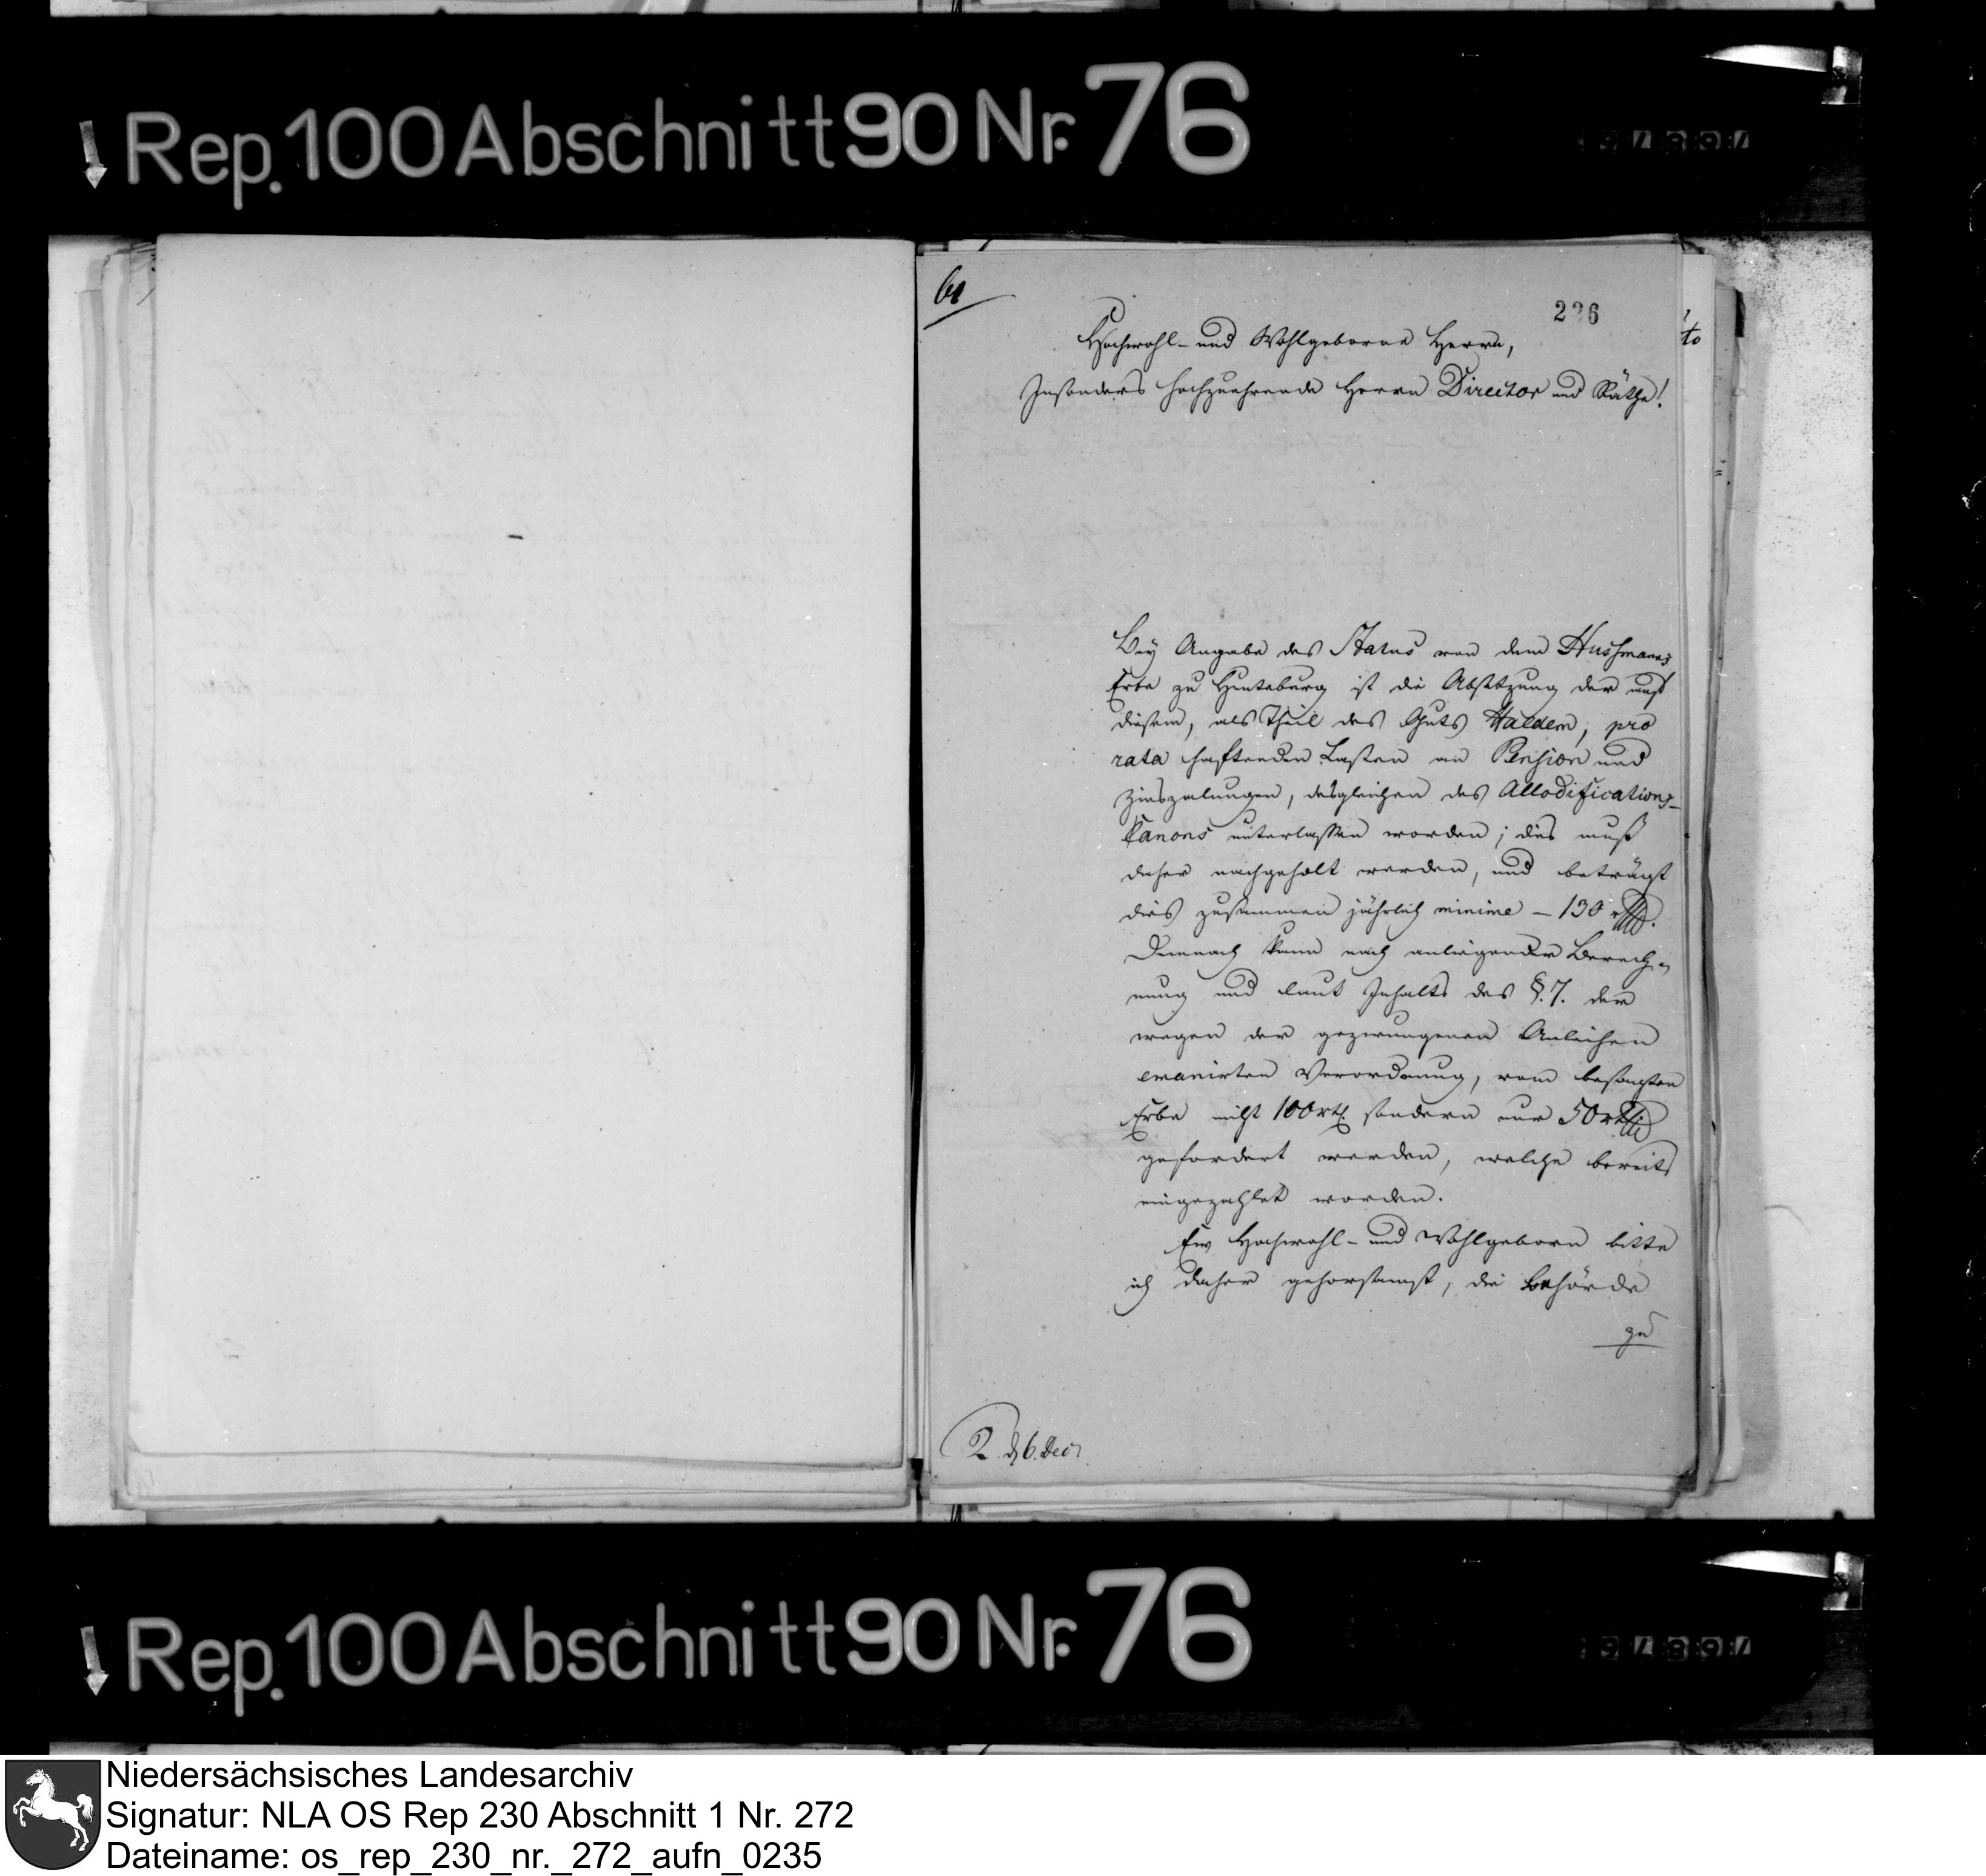 Rep. 100 Abschnitt 90 Nr. 76
61
236
Hochwohl- und Wohlgeborne Herrn,
Insonders hochzuehrende Herrn Director und Räthe!
to
Bey Angabe des Status von dem Hussmanns
Erbe zu Hunteburg ist die Absetzung der auf
diesem, als Theil des Guts Haldem, pro
rata haftenden Lasten an Pension und
Zinszalungen, desgleichen des Allodifications-
Canons unterlassen worden; dies muß
daher nachgeholt werden, und beträgt
dies zusammen jährlich minime – 130 rthlr.
Demnach kann nach anliegender Berech-
nung und laut Inhalts des §. 7. der
wegen der gezwungenen Anleihen
emanirten Verordnung, vom besagten
Erbe nicht 100 rt. sondern nur 50 rthlr
gefordert werden, welche bereits
eingezahlet worden.
Ew Hochwohl- und Wohlgeborn bitte
ich daher gehorsamst, die Behörde
zu
2. d. 6. Decr.
Rep. 100 Abschnitt 90 Nr. 76
Niedersächsisches Landesarchiv
Signatur: NLA OS Rep 230 Abschnitt 1 Nr. 272
Dateiname: os_rep_230_nr._272_aufn_0235